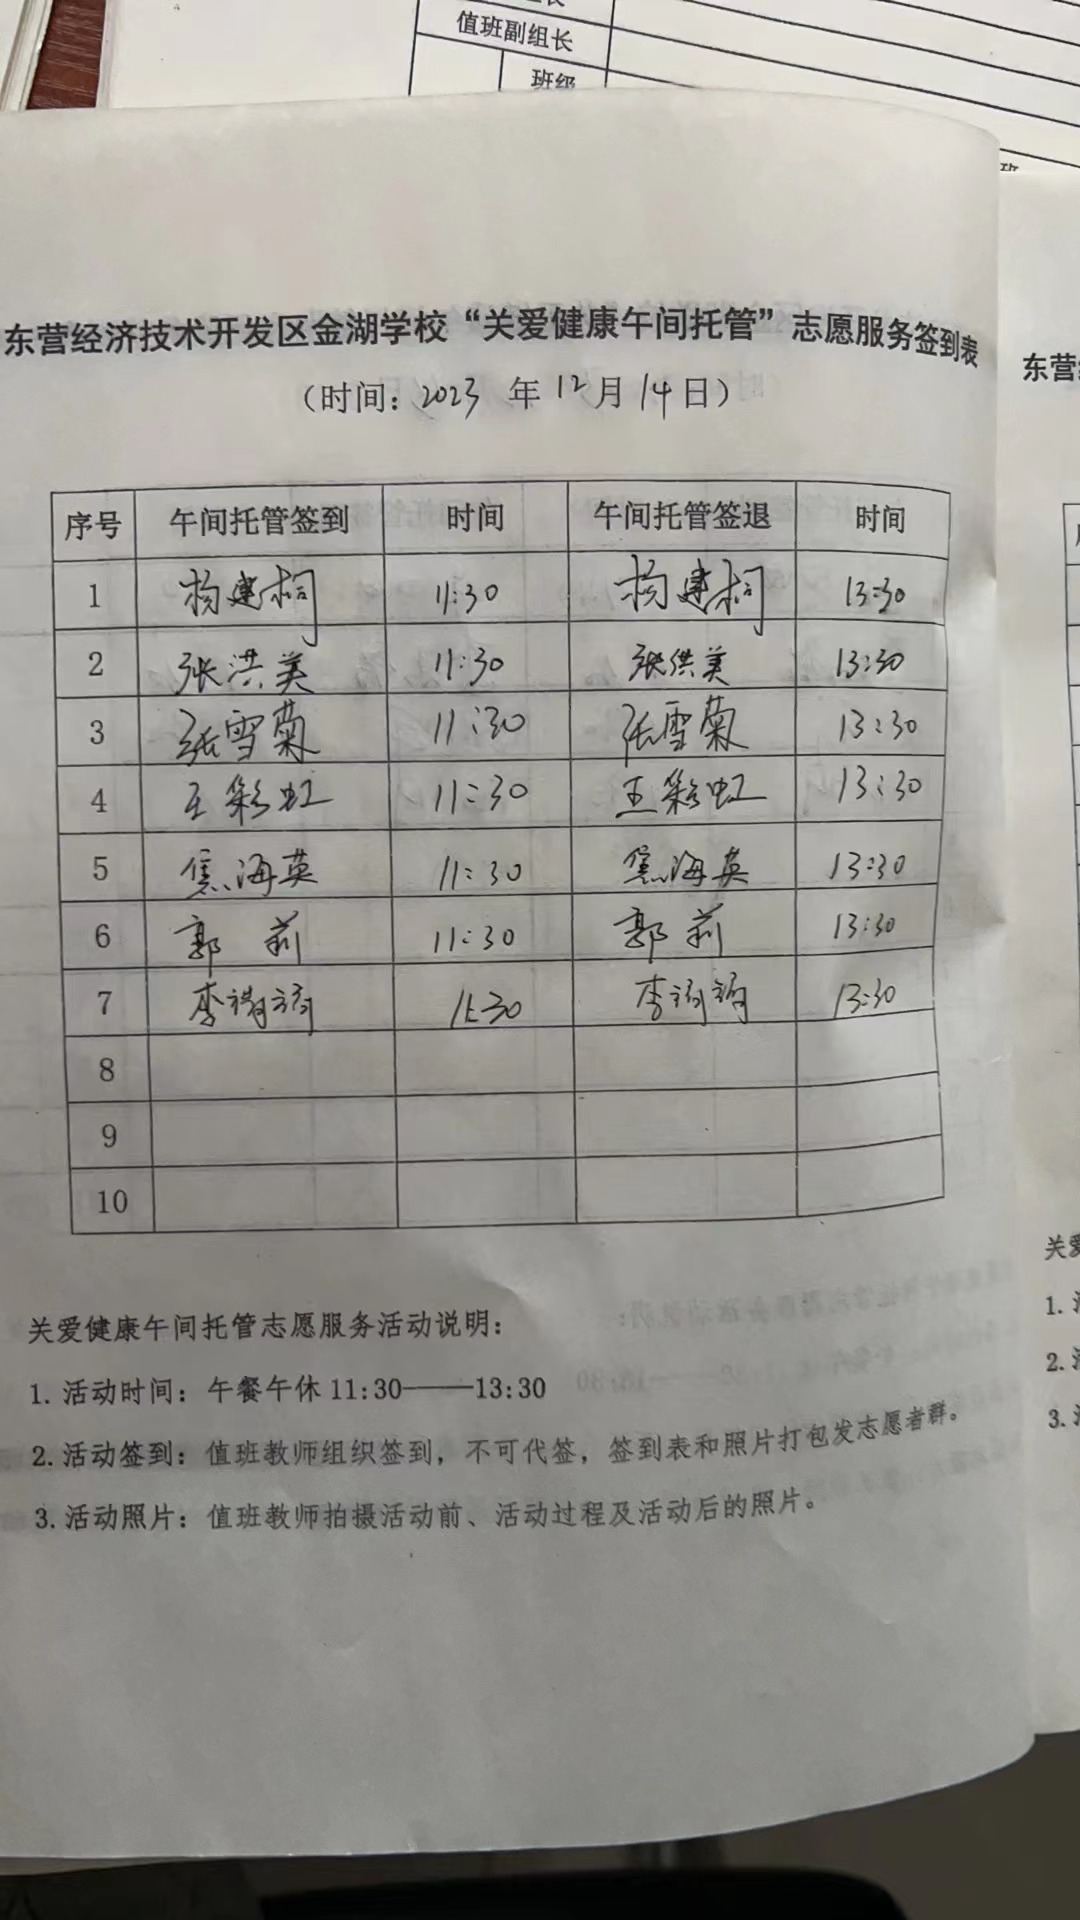 值班副组长
班级
东营经济技术开发区金湖学校“关爱健康午间托管”志愿服务签到表
（时间：2023 年 12 月 14 日）
序号 午间托管签到 时间 午间托管签退 时间
1 杨建桐 11:30 杨建桐 13:30
2 张洪美 11:30 张洪美 13:30
3 张雪菊 11:30 张雪菊 13:30
4 王彩虹 11:30 王彩虹 13:30
5 焦海英 11:30 焦海英 13:30
6 郭莉 11:30 郭莉 13:30
7 李 11:30 李 13:30
8
9
10
关爱健康午间托管志愿服务活动说明：
1. 活动时间：午餐午休 11:30——13:30
2. 活动签到：值班教师组织签到，不可代签，签到表和照片打包发志愿者群。
3. 活动照片：值班教师拍摄活动前、活动过程及活动后的照片。
东营
关爱
1.
2.
3.